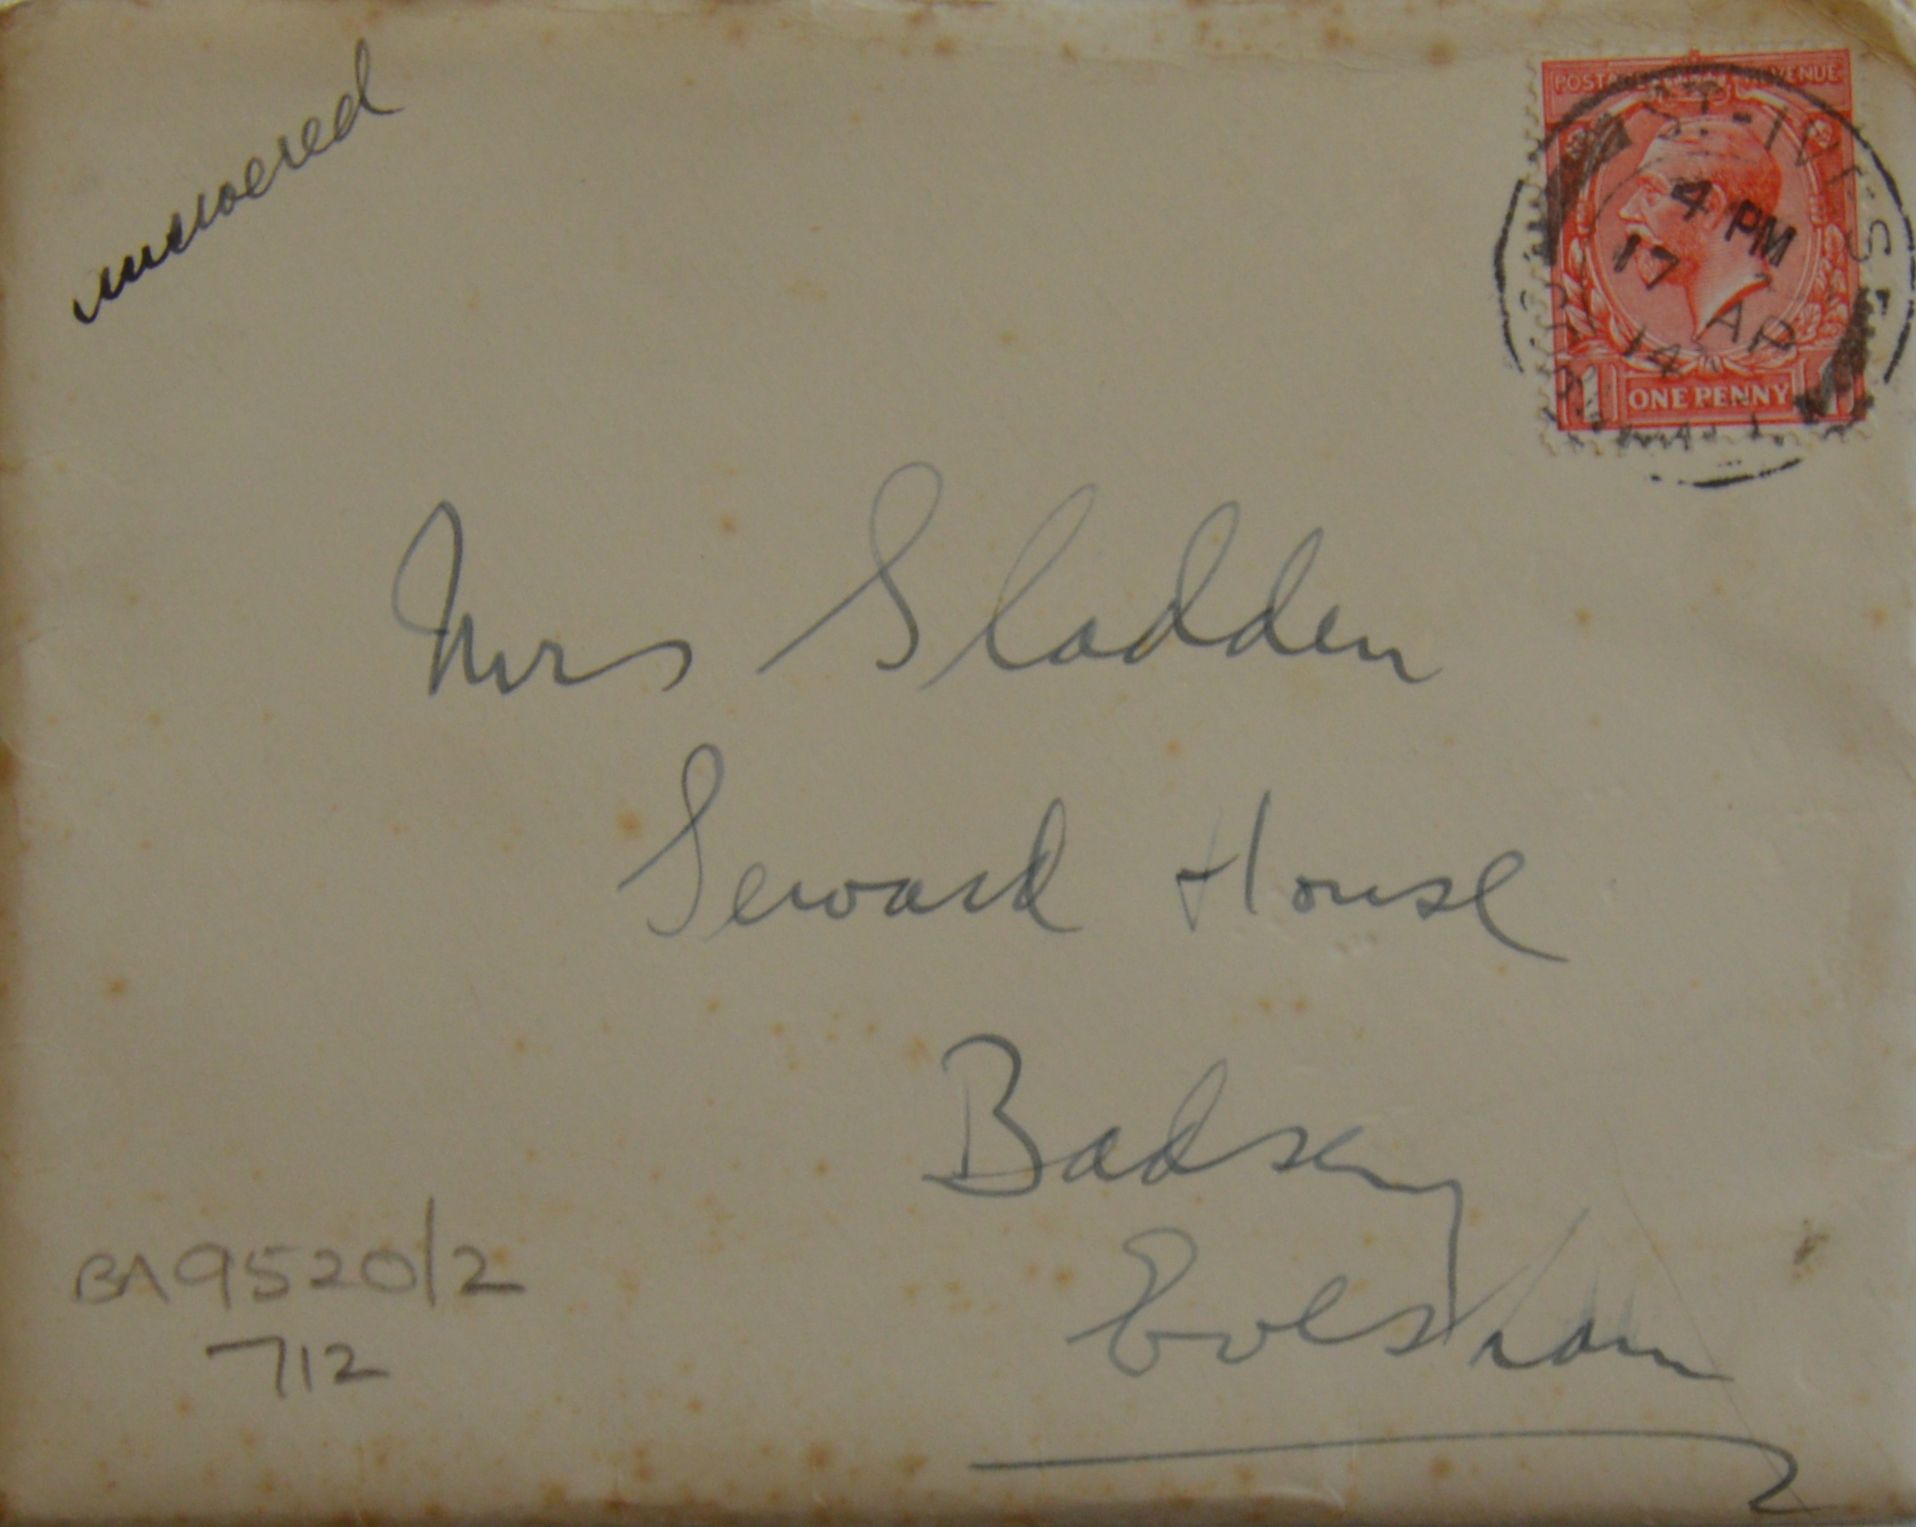 answered
POSTAGE REVENUE
ST. IVES
4 PM
17 AP
14
1 ONE PENNY 1
Mrs Sladden
Seward House
Badsey
Evesham
BA9520/2
712